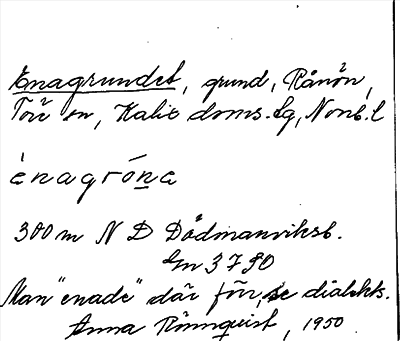 Enagrundet, grund, Rånön,
Töre sn, Kalix doms.sg, Norrb. l
ènagróna
300 m N D Dödmanviksb.
Lm 3790
Man "enade" där förr, se dialekts.
Anna Rönnquist, 1950